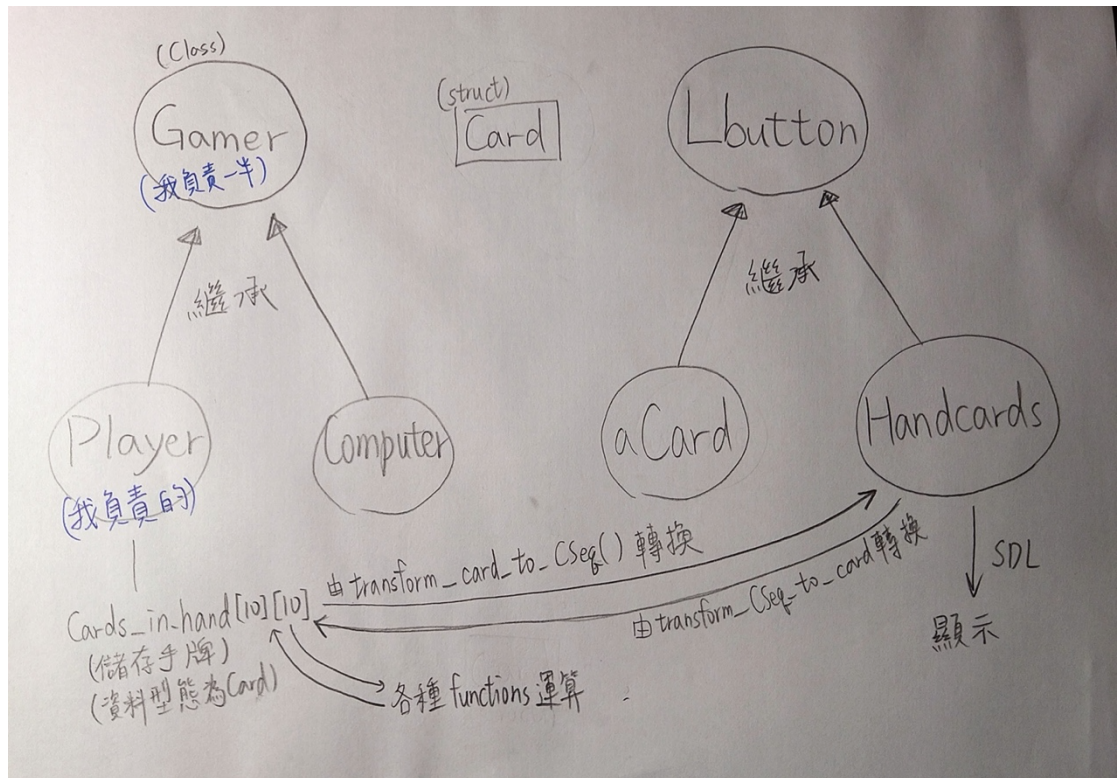 (Class)
Gamer
(我負責一半)
(struct)
Card
Lbutton
繼承
繼承
Player
(我負責的)
Computer
aCard
Handcards
Cards_in_hand[10][10]
(儲存手牌)
(資料型態為Card)
由transform_card_to_CSeq()轉換
由transform_CSeq_to_card轉換
各種functions運算
SDL
顯示